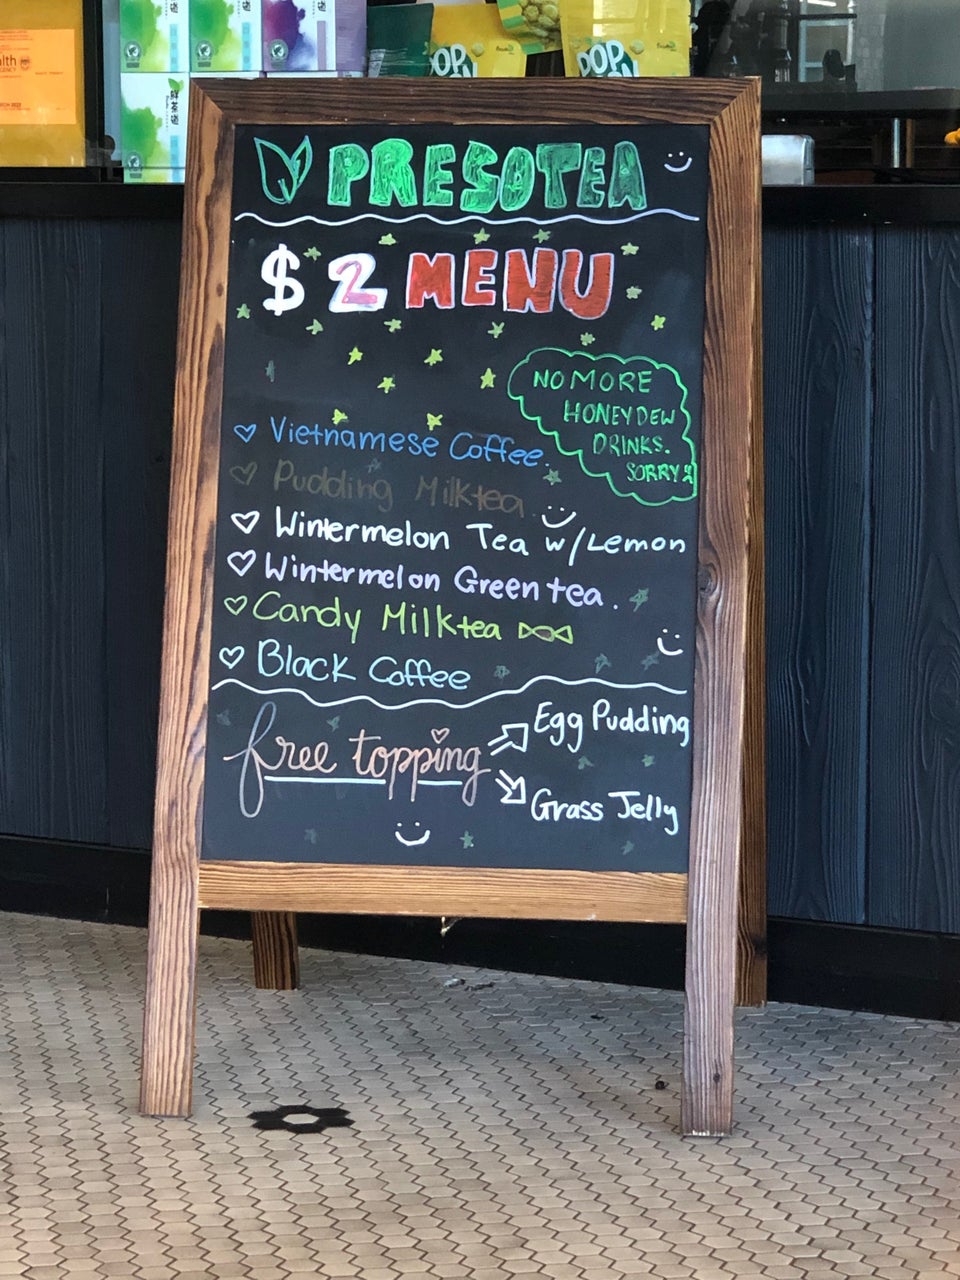 鮮茶道
POP
POP
PRESOTEA
$2 MENU
NO MORE
HONEYDEW
DRINKS.
SORRY
Vietnamese Coffee.
Pudding Milktea
Wintermelon Tea w/Lemon
Wintermelon Green tea.
Candy Milktea
Black Coffee
free topping
Egg Pudding
Grass Jelly